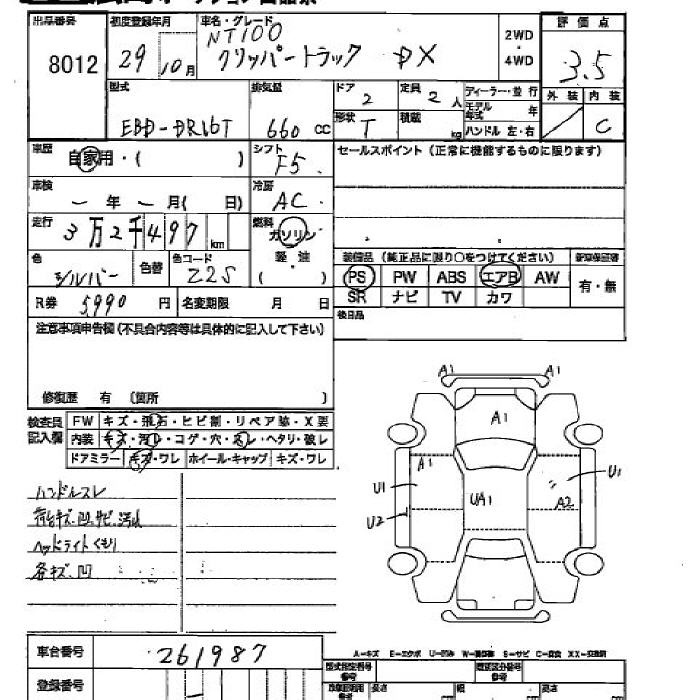 出品番号 初度登録年月 車名・グレード 評価点
8012 29 10月 NT100
クリッパートラック DX 2WD ・ 4WD 3.5
型式 排気量 ドア 2 定員 2人 ディーラー・並行 外装 内装
モデル年式 年
EBD-DR16T 660 cc 形状 T 積載 kg ハンドル 左・右 C
車歴 自家用・( ) シフト F5 セールスポイント (正常に機能するものに限ります)
車検 ー年ー月( 日) 冷房 AC
走行 3万2千497 km 燃料 ガソリン
軽・油
( )
色 シルバー 色替 色コード Z2S
装備品 (純正品に限り○をつけてください) 新車保証書
PS PW ABS エアB AW 有・無
SR ナビ TV カワ
R券 5,990 円 名変期限 月 日
後日品
注意事項申告欄(不具合内容等は具体的に記入して下さい)
修復歴 有 〔箇所 〕
検査員記入欄 FW キズ・飛石・ヒビ割・リペア跡・X要
内装 キズ・汚れ・コゲ・穴・スレ・ヘタリ・破レ
ドアミラー キズ・ワレ ホイール・キャップ キズ・ワレ
ハンドルスレ
荷台キズ・凹・サビ・汚れ
ヘッドライトくもり
各キズ・凹
A1 A1
A1
A1 U1
U1 UA1 A2
U2
A-キズ E-エクボ U-凹み S-サビ XX-交換済
車台番号 261987
型式指定番号 参考 類別区分番号 参考
登録番号 長さ 幅 高さ